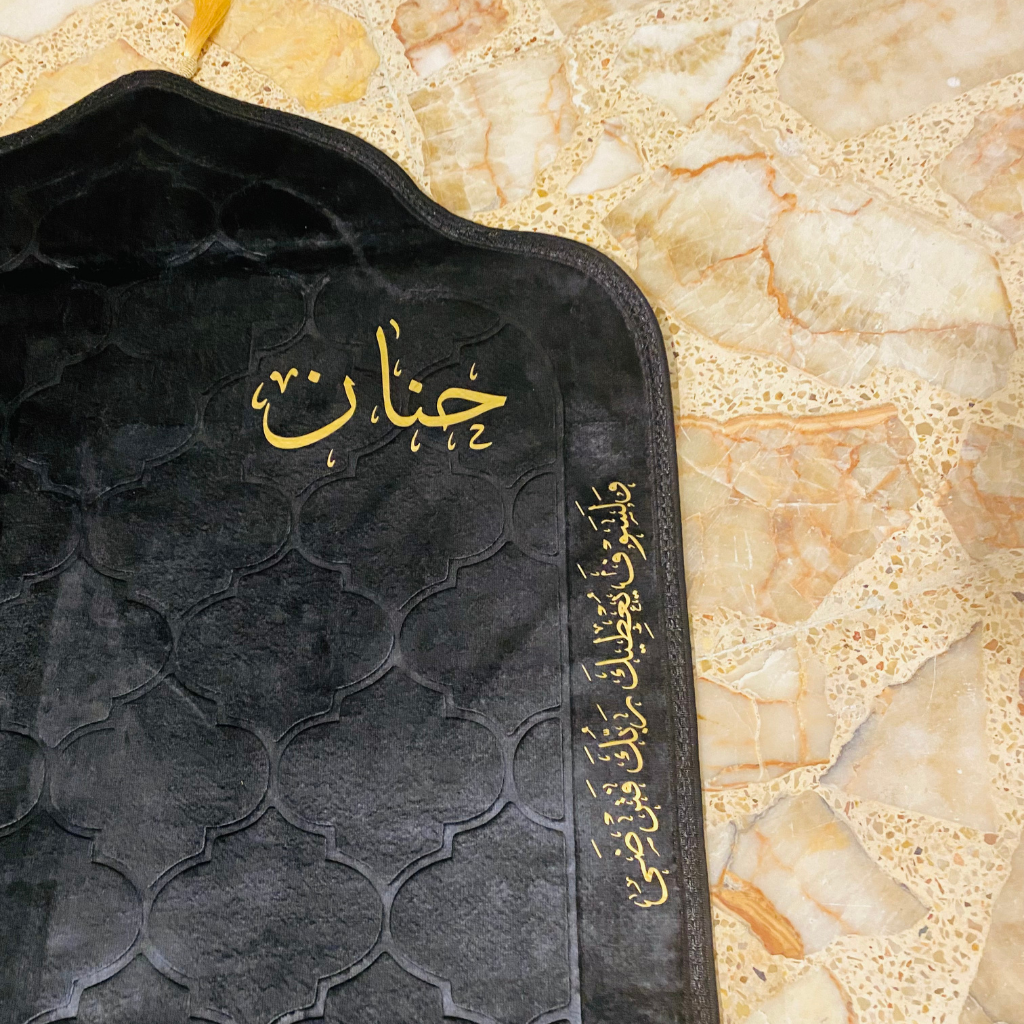 حنان
وَلَسَوفَ يُعْطِيكَ رَبُّكَ فَتَرْضَىٰ